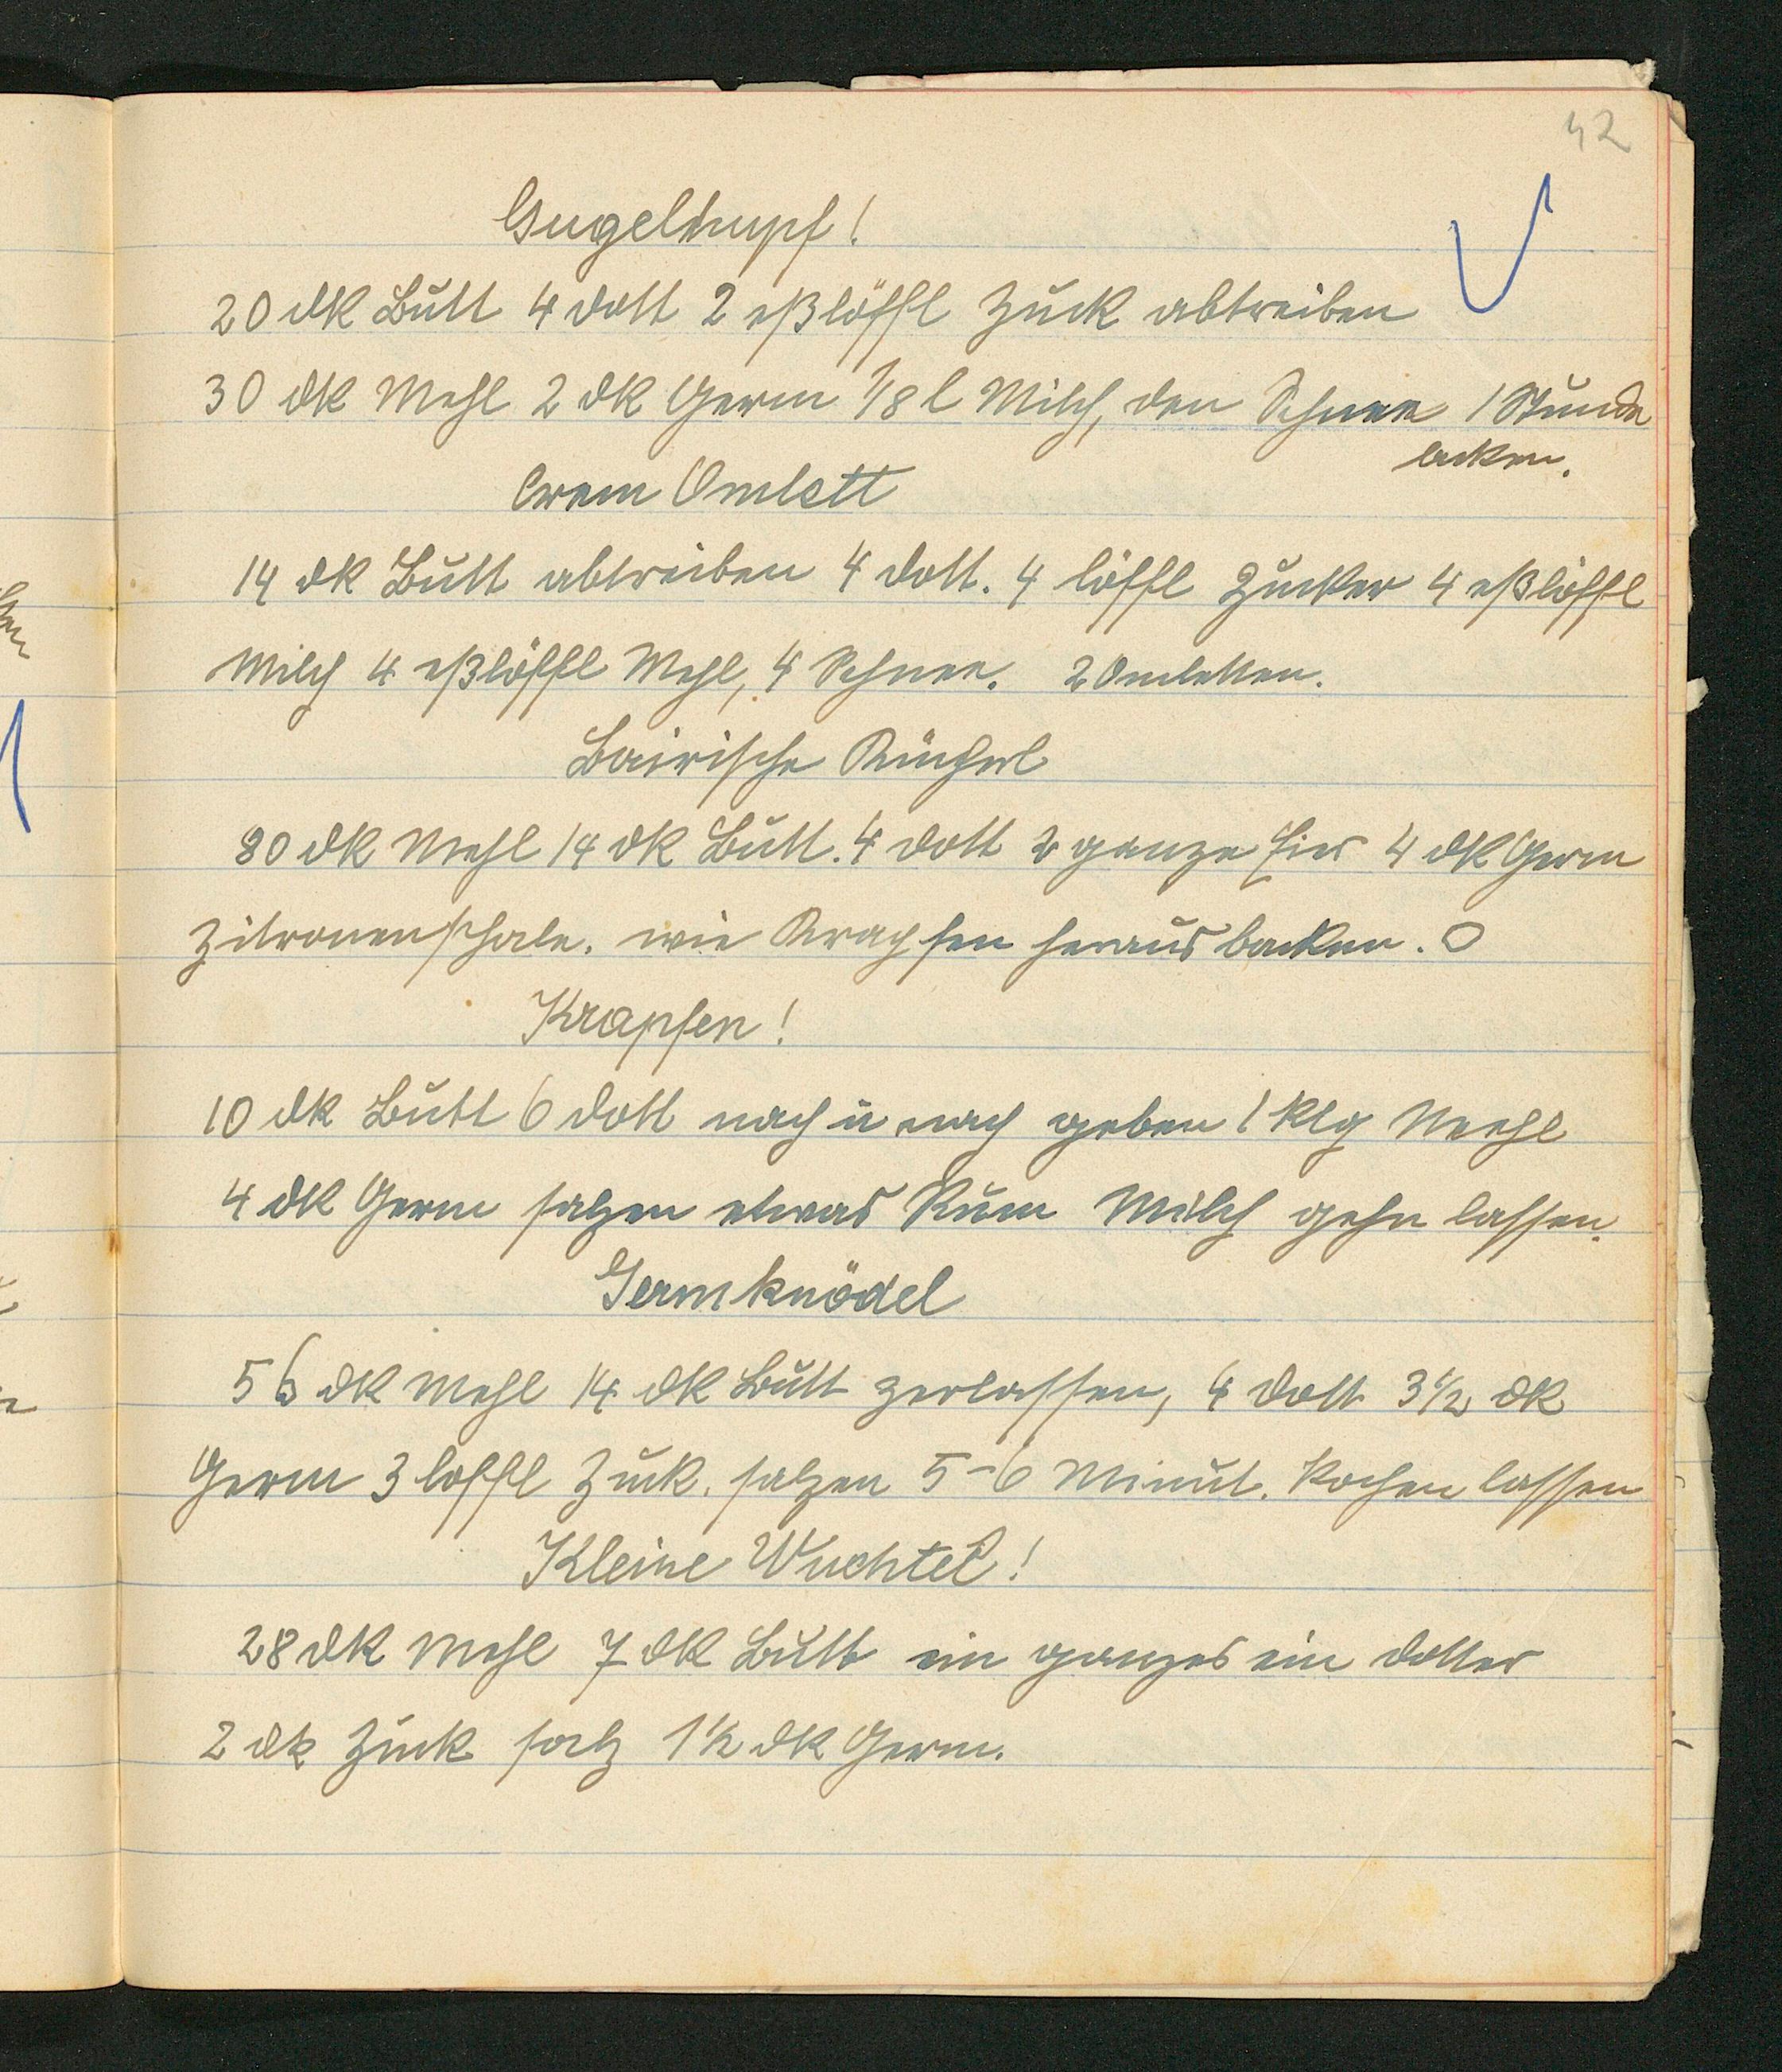 42
Gugelhupf!
20 dk Butt 4 dott 2 eßlöffl Zuck abtreiben
30 dk Mehl 2 dk Germ 1/8 l Milch, den Schnee 1 Stunde
backen.
Crem Omlett
14 dk Butt abtreiben 4 dott. 4 löffl Zucker 4 eßlöffl
Milch 4 eßlöffl Mehl, 4 Schnee. 2 Omletten.
Bairische Kücherl
80 dk Mehl 14 dk Butt. 4 dott 2 ganze Eier 4 dk Germ
Zitronenschale. wie Krapfen heraus backen. O
Krapfen!
10 dk Butt 6 dott nach u nach geben 1 klg Meehl
4 dk Germ salzen etwas Rum Milch gehn lassen.
Germknödel
56 dk Mehl 14 dk Butt zerlassen, 4 dott 3 1/2 dk
Germ 3 loffl Zuck. salzen 5-6 Minut. kochen lassen
Kleine Wuchtel!
28 dk Mehl 7 dk Butt ein ganzes ein dotter
2 dk Zuck salz 1 1/2 dk Germ.